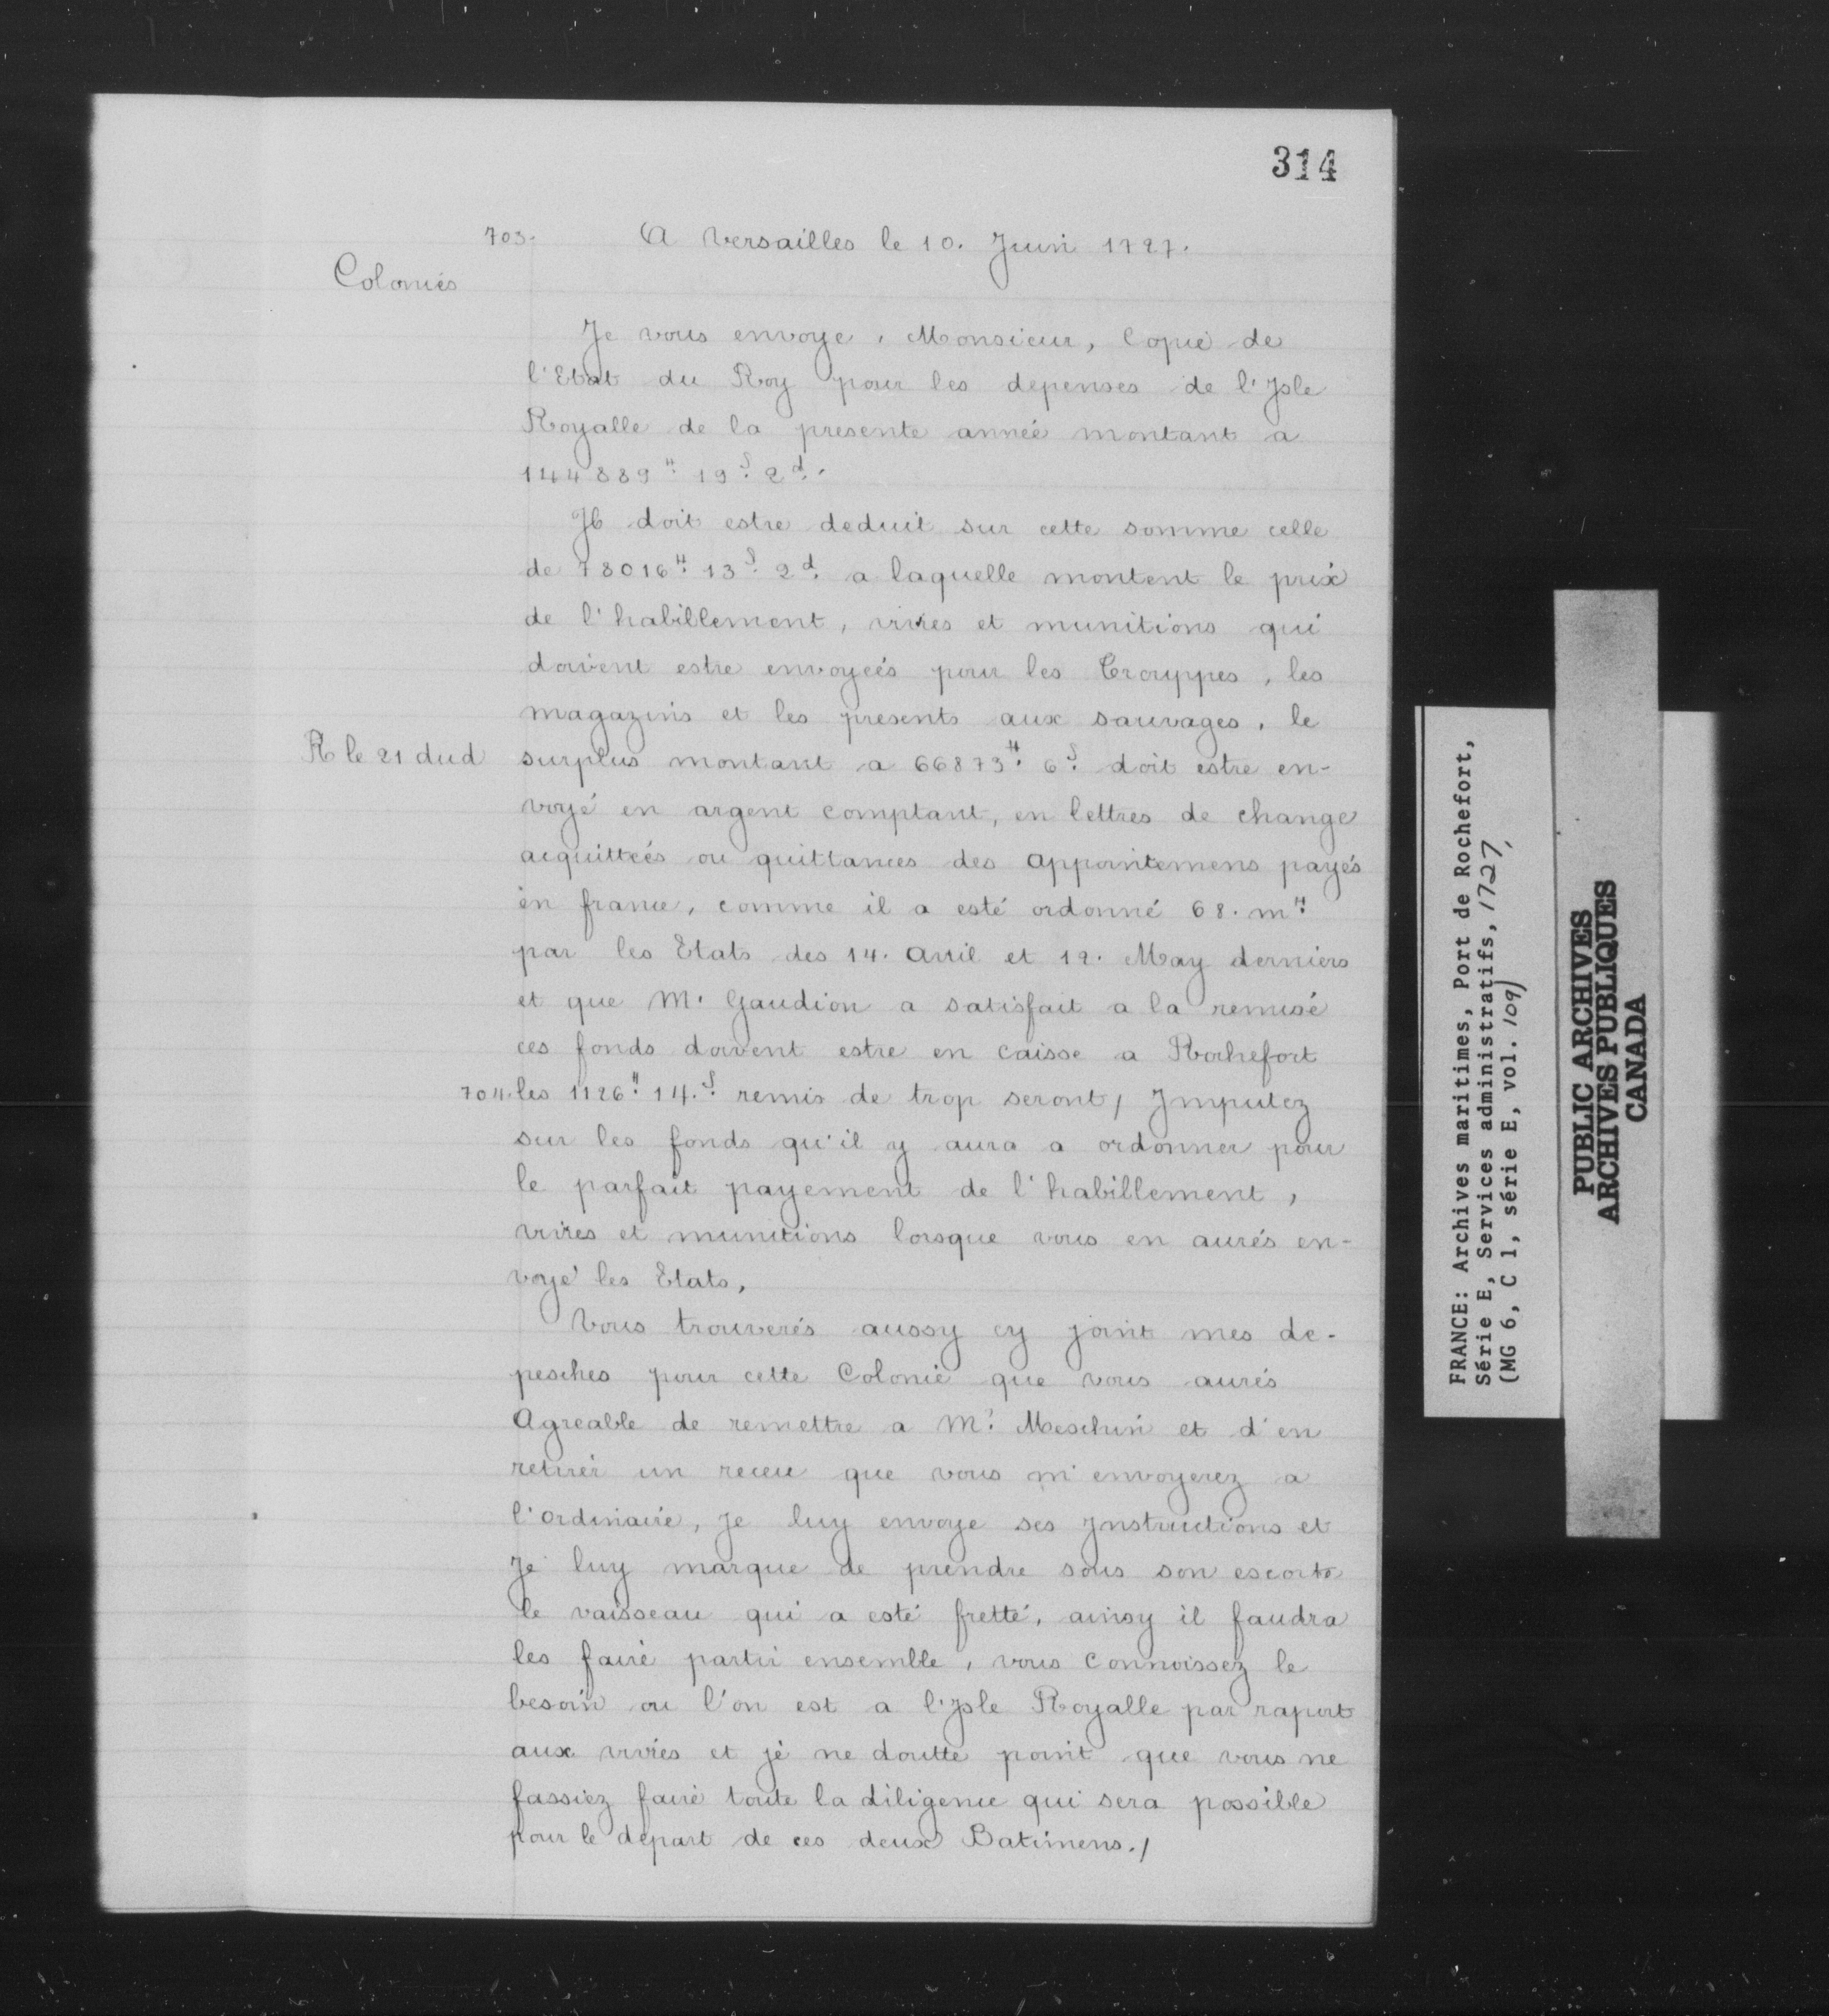 314
703. A Versailles le 10. Juin 1727.
Colonies
Je vous envoye, Monsieur, Copie de
l'Etat du Roy pour les depenses de l'Jsle
Royalle de la presente année montant a
144889ᴴ 19ˢ 2ᵈ.
Il doit estre deduit sur cette somme celle
de 78016ᴴ 13ˢ 2ᵈ a laquelle montent le prix
de l'habillement, vivres et munitions qui
doivent estre envoyeés pour les Trouppes, les
magazins et les presents aux sauvages, le
R le 21 dud
surplus montant a 66873ᴴ 6ˢ doit estre en-
voyé en argent comptant, en lettres de change
acquitteés ou quittances des appointemens payés
en france, comme il a esté ordonné 68. mᴴ
par les Etats des 14. Avril et 12. May derniers
et que Mʳ Gaudion a satisfait a la remise
ces fonds doivent estre en caisse a Rochefort
704. les 1126ᴴ 14.ˢ remis de trop seront, Jmputez
sur les fonds qu'il y aura a ordonner pour
le parfait payement de l'habillement,
vivres et munitions lorsque vous en aurés en-
voyé les Etats,
Vous trouverés aussy cy joint mes de-
pesches pour cette Colonie que vous aurés
Agreable de remettre a Mʳ Meschin et d'en
retirer un receu que vous m'envoyerez a
l'ordinaire, Je luy envoye ses Jnstructions et
Je luy marque de prendre sous son escorte
le vaisseau qui a esté fretté, ainsy il faudra
les faire partir ensemble, vous connoissez le
besoin ou l'on est a l'Jsle Royalle par raport
aux vivres et je ne doutte point que vous ne
fassiez faire toute la diligence qui sera possible
pour le départ de ces deux Batimens./
FRANCE: Archives maritimes, Port de Rochefort,
Série E, Services administratifs, 1727,
(MG 6, C 1, série E, vol. 109)
PUBLIC ARCHIVES
ARCHIVES PUBLIQUES
CANADA